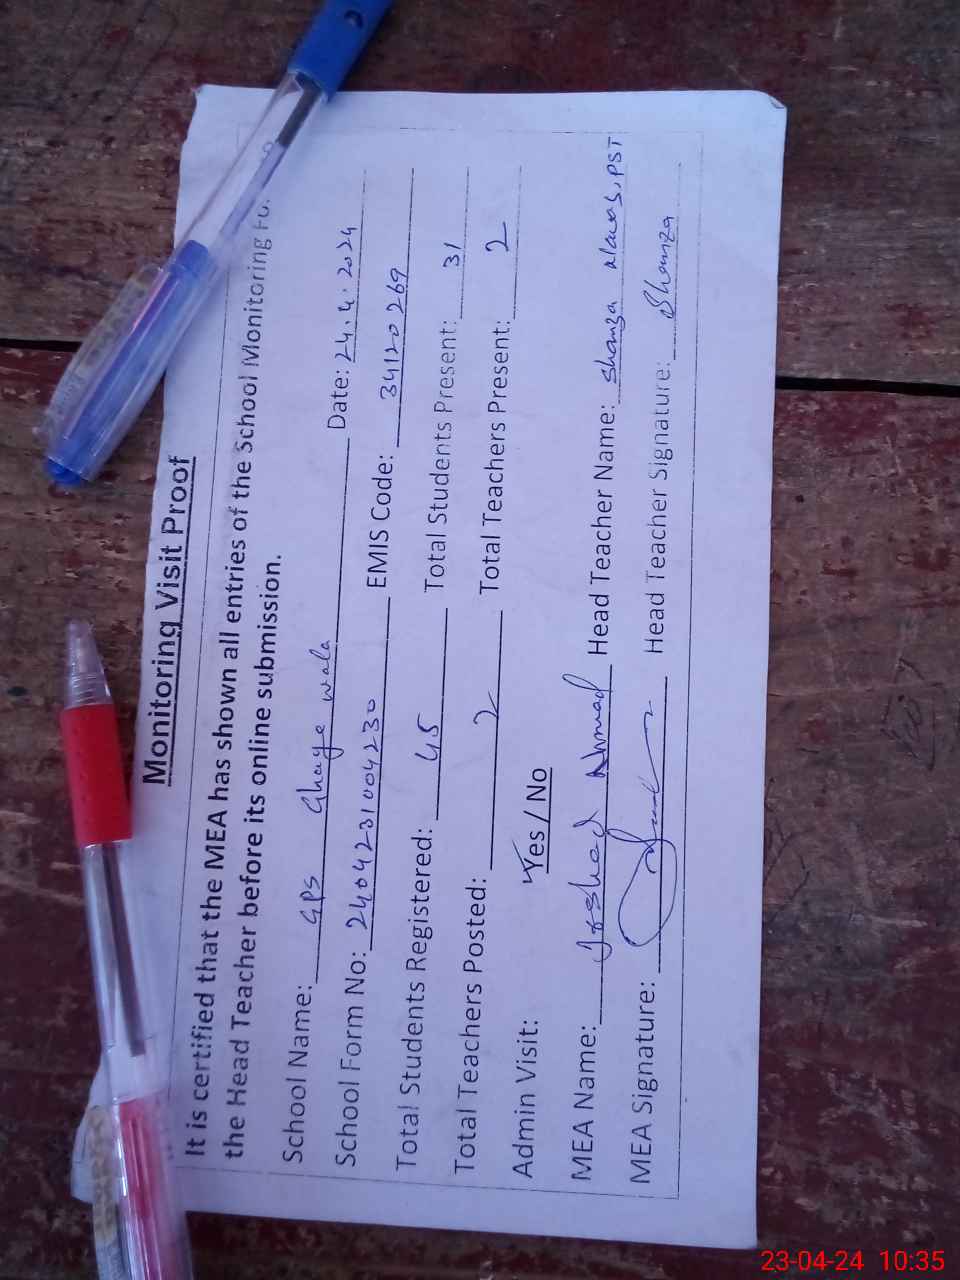 Monitoring Visit Proof
It is certified that the MEA has shown all entries of the School Monitoring
the Head Teacher before its online submission.
School Name: GPS Ghaye wala Date: 24.4.2024
School Form No: 2404231004230 EMIS Code: 34120269
Total Students Registered: 45 Total Students Present: 31
Total Teachers Posted: 2 Total Teachers Present: 2
Admin Visit: Yes / No
MEA Name: Irshad Ahmad Head Teacher Name: Shanza PST
MEA Signature: Head Teacher Signature: Shanza
23-04-24 10:35